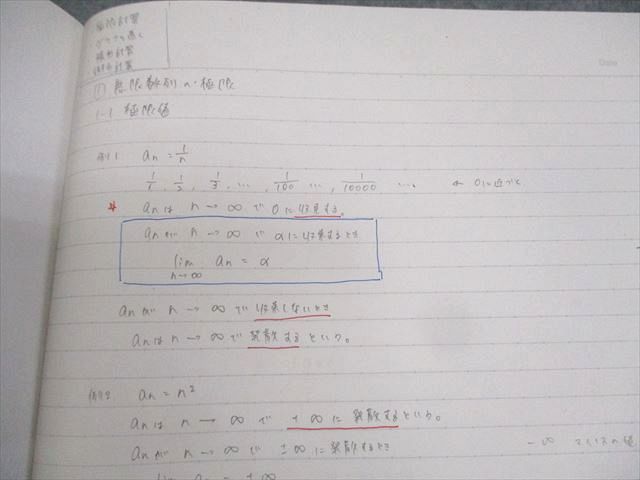 極限計算
微分計算
積分計算
① 無限数列の極限
1-1 極限値
例1.1 aₙ = 1/n
1/1, 1/2, 1/3, …, 1/100 …, 1/10000 … ← 0に近づく
☆ aₙは n → ∞ で 0に収束する。
aₙが n → ∞ で αに収束するとき
lim n→∞ aₙ = α
aₙが n → ∞ で 収束しないとき
aₙは n → ∞ で 発散する という。
例1.2 aₙ = n²
aₙは n → ∞ で +∞に発散するという。
aₙが n → ∞ で ±∞に発散するとき
lim aₙ = ±∞
-∞ マイナスの
Date